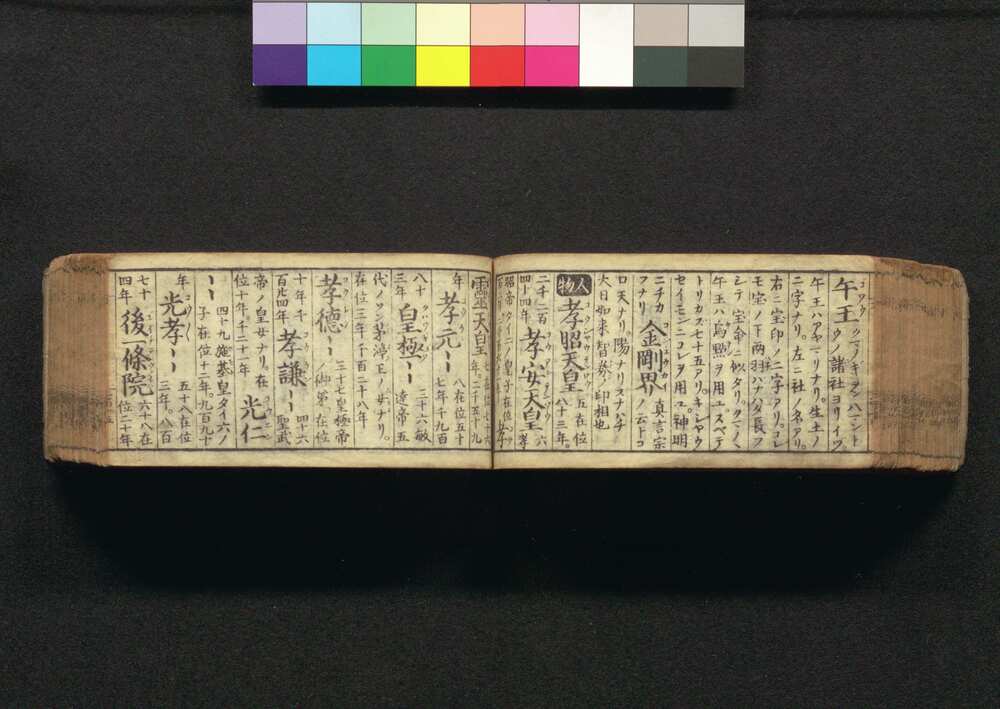 午王 ウノ諸社ヨリイヅ
午王ハアヤマリナリ。生土ノ
二字ナリ。左ニ社ノ名アリ。
右ニ宝印ノ二字アリ。コレ
モ宝ノ下両
シテ宝命ニ似タリ。タマ〱
午王ハ烏點ヲ用ユスベテ
トリカズ七十五アリ。キシヤウ
セイモンニコレヲ用ユ。神明
ニチカフナリ 金剛界 真言宗ノ云トコ
ロ天ナリ陽ナリスナハチ
大日如来智拳ノ印相也
人物 孝昭天皇 五在位
八十三年。
二千二百四十四年 孝安天皇 六
昭帝 ノ皇子在位
孝
靈天皇 七
年。二千五十九
年 孝元 八在位五十
七年千九百
八十三年 皇極 三十六敏
達帝五
代ノソン茅渟王ノ女ナリ。
在位三年。千百二十八年
孝德 三十七皇極帝
ノ御弟在位
十年。千百九四年 孝謙 四十六
聖武
帝ノ皇女ナリ。在
位十年。千二十一年 光仁
四十九施基皇タイ六ノ
子在位十二年。九百九十
年 光孝 五十八在位
三年。八百
七十四年 後一條院 六十八在
位二十年